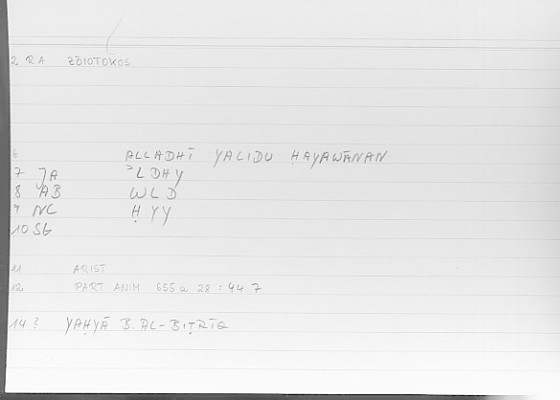 2 RA ZŌIOTOKOS
6 ALLADHĪ YALIDU ḤAYAWĀNAN
7 JA ʾLDHY
8 AB WLD
9 NC ḤYY
10 SG
11 ARIST
12 PART ANIM 655 a 28 : 44 7
14 ? YAḤYĀ B. AL-BIṬRĪQ